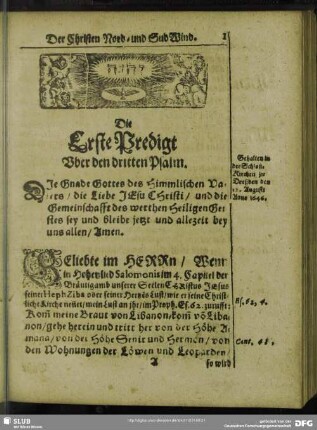 Der Christen Nord- und Sud Wind. 1
Die
Erste Predigt
Vber den dritten Psalm.
Gehalten in
der Schloß-
Kirchen zu
Dreßden den
Augusti
Anno
DIe Gnade Gottes des Himmlischen Va-
ters / die Liebe JEsu Christi / und die
Gemeinschafft des werthen Heiligen Gei-
stes sey und bleibe jetzt und allezeit bey
uns allen / Amen.
GEliebte im HERRn / Wenn
in Hohenlied Salomonis im 4. Capitel der
Bräutigamb unserer Seelen Christus Jesus
seiner HephZiba oder seiner Hertzēs Lust / wie er seine Christ-
liche Kirche nennet / mein Lust an ihr / im Proph. Es. 62. zurufft:
Es. 62, 4.
Kom meine Braut von Libanon / kom vō Liba-
non / gehe herein und tritt her von der Höhe A-
mana / von der Höhe Senir und Hermon / von
Cant. 4
den Wohnungen der Löwen und Leoparden /
A so wird
SLUB
Wir führen Wissen.
gefördert von der
Deutschen Forschungsgemeinschaft
DFG